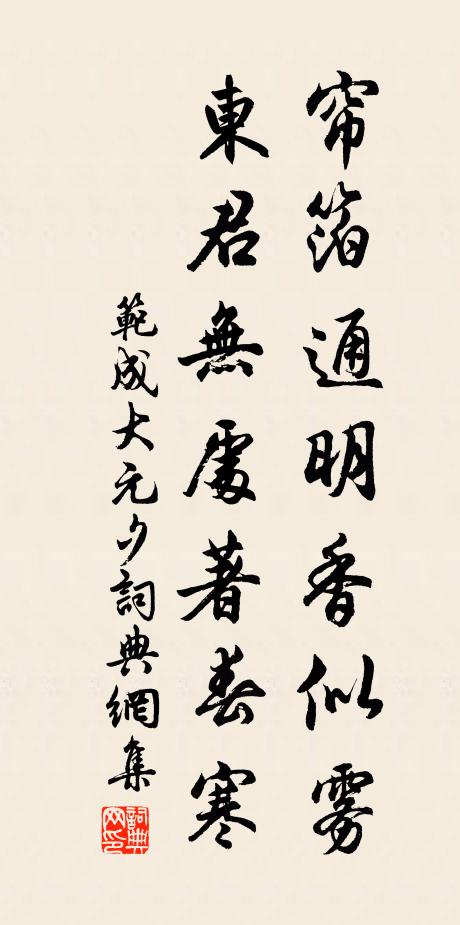 帘箔通明香似雾
東君無處著春寒
範成大元夕詞典網集
詞典网印